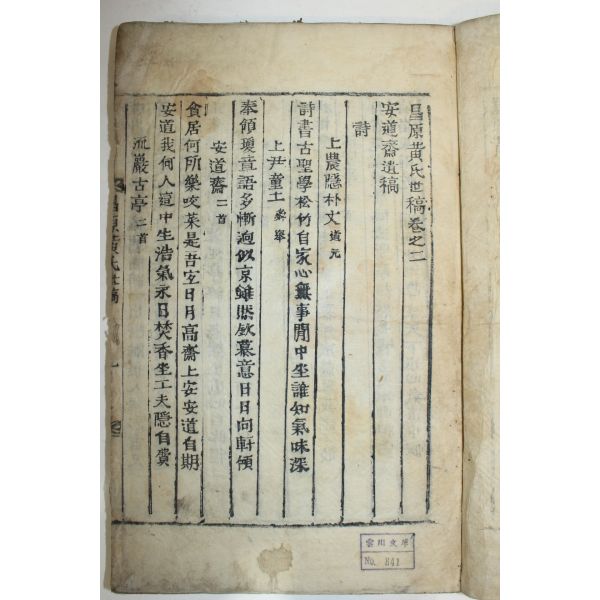 昌原黃氏世稿卷之二
安道齋遺稿
詩
上農隱朴丈 道元
詩書古聖學松竹自家心無事閒中坐誰知氣味深
上尹童土 舜擧
奉領瓊音語多慚逈似京雖然欽慕意日日向軒傾
安道齋 二首
食居何所樂咬菜是吾安日月高齋上安安道自期
安道我何人這中生浩氣永日焚香坐工夫隱自賞
巖古亭 二首
昌原黃氏世稿
雲川文庫
No. 841